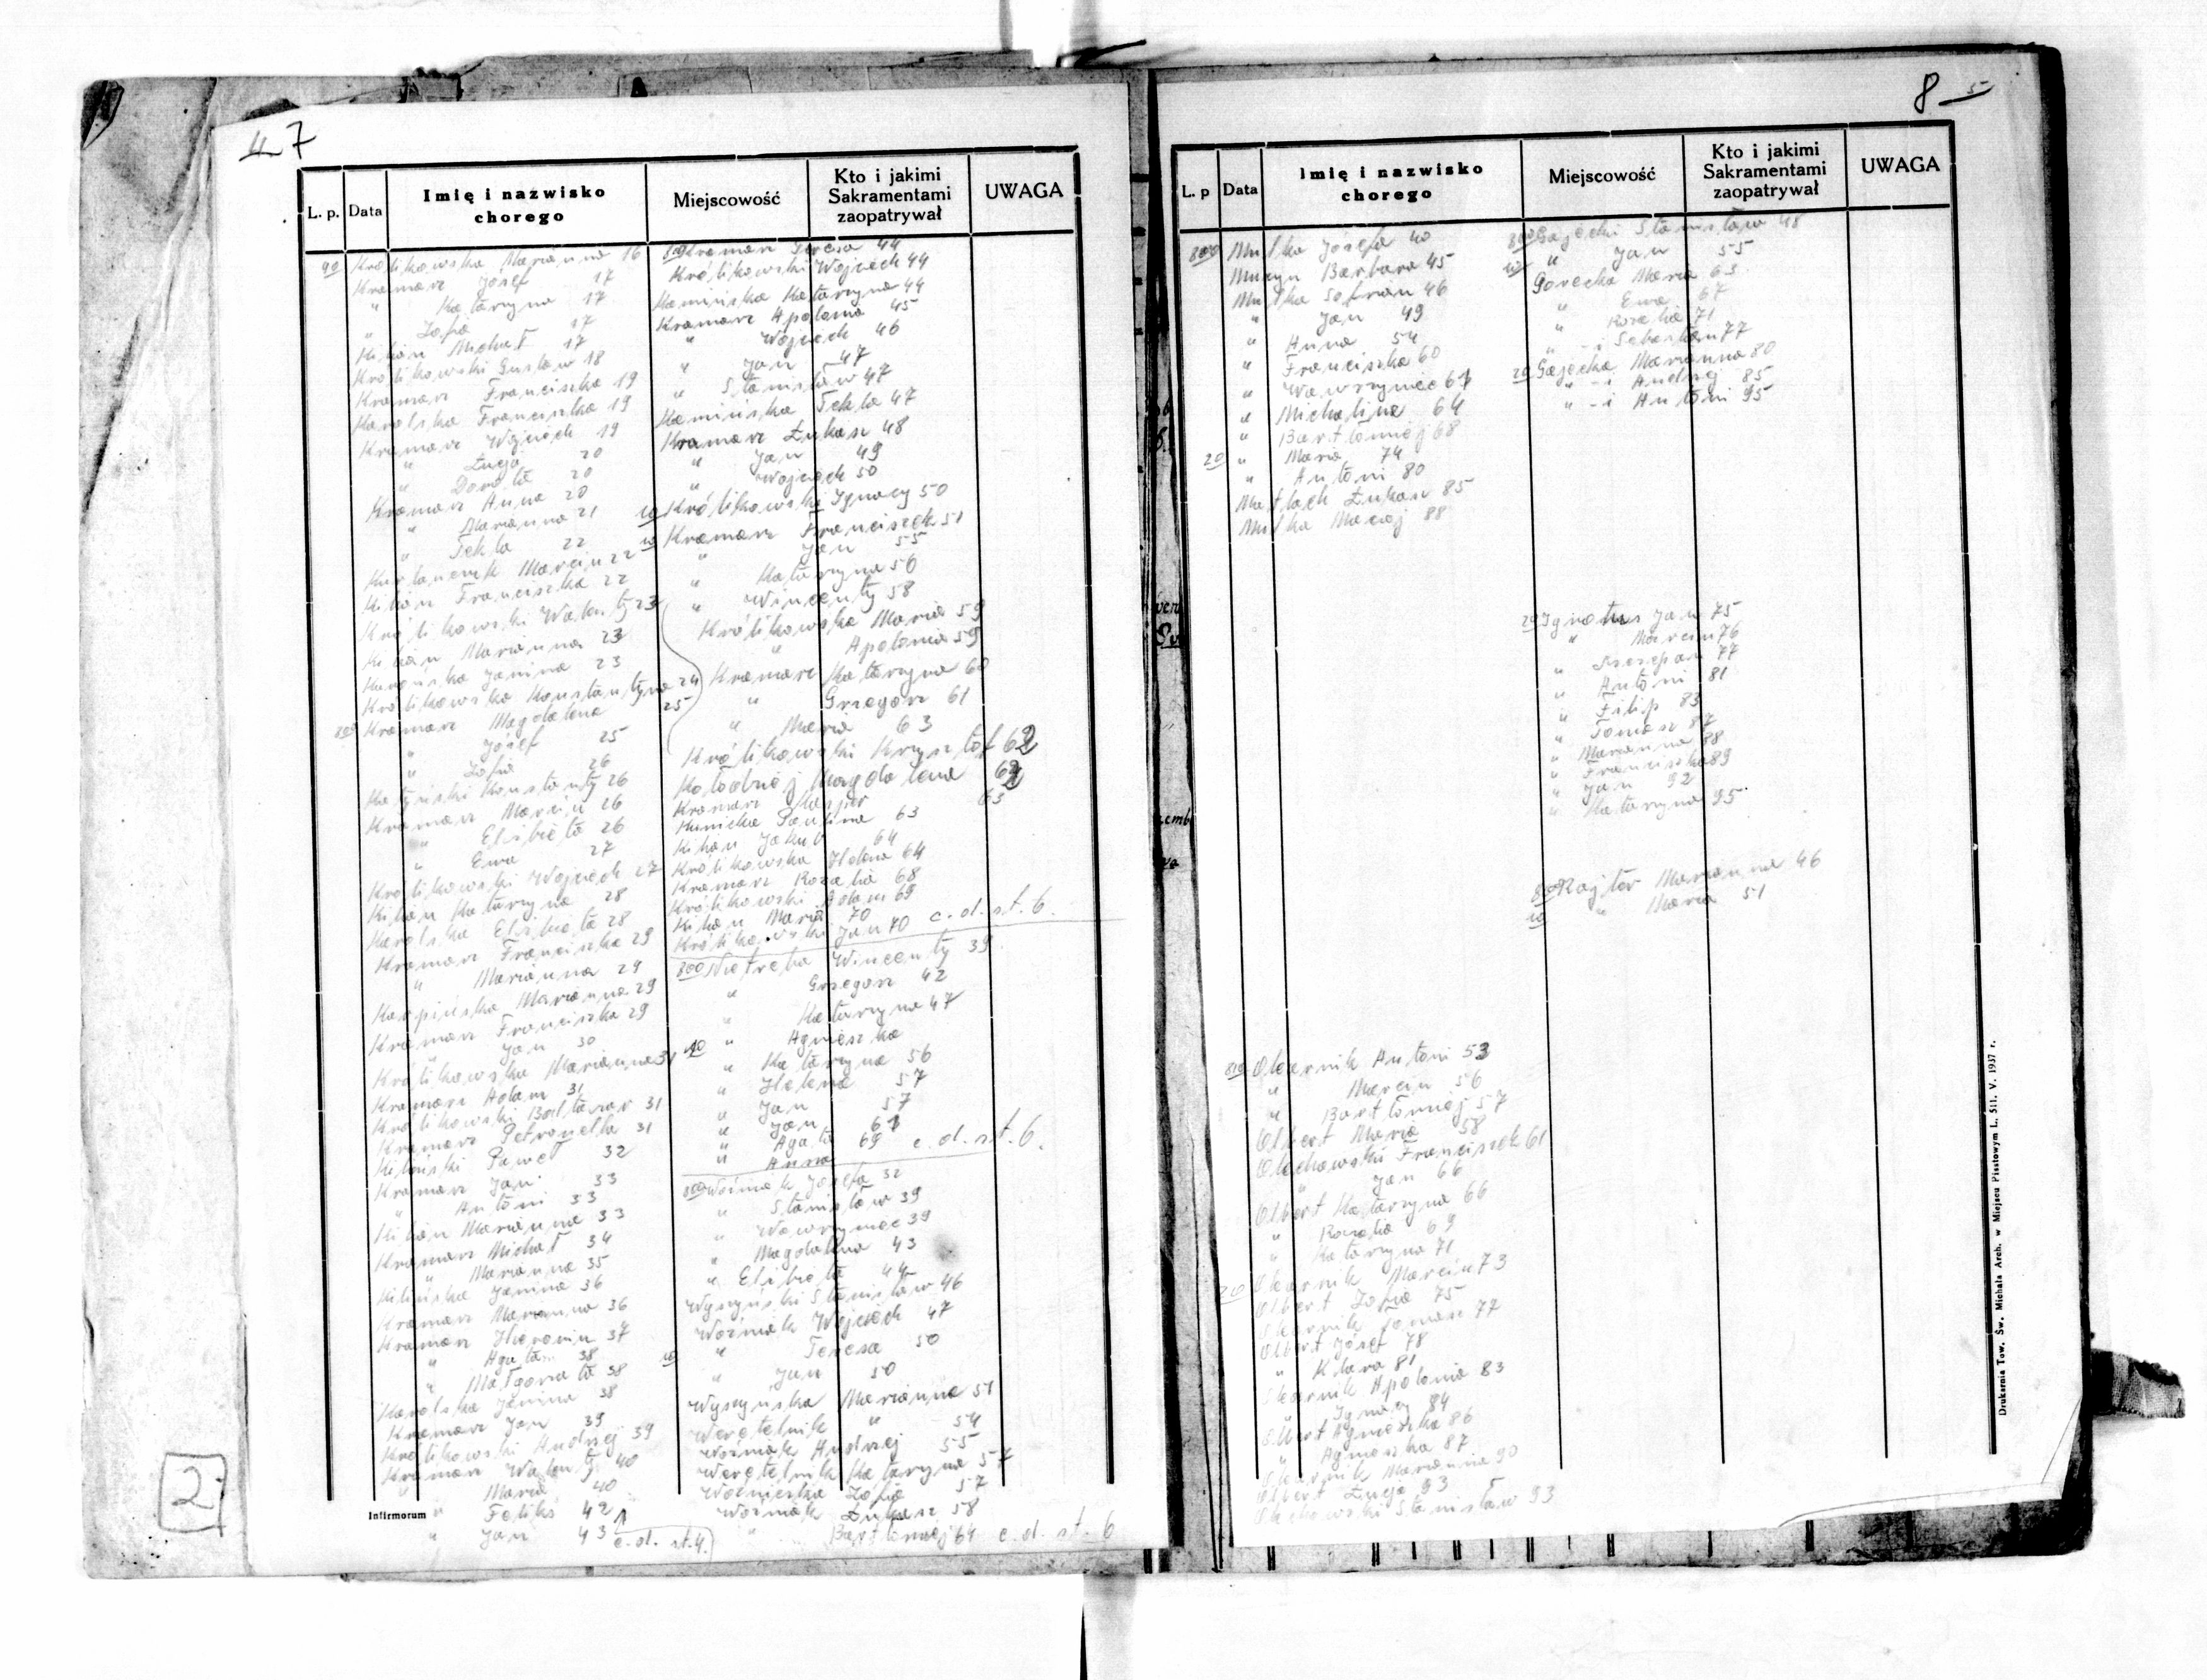 4 7
L. p.
Data
Imię i nazwisko
chorego
Miejscowość
Kto i jakimi
Sakramentami
zaopatrywał
UWAGA
90 Królikowska Marianna 16
Kramarz Józef 17
" Katarzyna 17
" Zofia 17
Kilian Michał 17
Królikowski Gustaw 18
Kramarz Franciszka 19
Karolska Franciszka 19
Kramarz Wojciech 19
" Łucja 20
" Dorota 20
Kramarz Anna 20
" Marianna 21
" Tekla 22
Marcin 22
Kilian Franciszka 22
Królikowski Walenty 23
Kilian Marianna 23
Janina 23
Królikowska Konstantyna 24
800 Kramarz Magdalena 25
" Józef 25
" Zofia 26
Konstanty 26
Kramarz Marcin 26
" Elżbieta 26
" Ewa 27
Królikowski Wojciech 27
Kilian Katarzyna 28
Karolska Elżbieta 28
Kramarz Franciszka 29
" Marianna 29
Karpińska Marianna 29
Kramarz Franciszka 29
" Jan 30
Królikowska Marianna 31
Kramarz Adam 31
Królikowski Baltazar 31
Kramarz Petronella 31
Kiliński Paweł 32
Kramarz Jan 33
" Antoni 33
Kilian Marianna 33
Kramarz Michał 34
" Marianna 35
Kilińska Janina 36
Kramarz Marianna 36
Kramarz Hieronim 37
" Agata 38
" Małgorzata 38
Karolska Janina 38
Kramarz Jan 39
Królikowski Andrzej 39
Kramarz Walenty 40
" Maria 40
" Feliks 42
" Jan 43 c.d. st. 4.
Infirmorum
800 Kramarz Teresa 44
Królikowski Wojciech 44
Kamińska Katarzyna 44
Kramarz Apolonia 45
" Wojciech 46
" Jan 47
" Stanisław 47
Kamińska Tekla 47
Kramarz Łukasz 48
" Jan 49
" Wojciech 50
10 Królikowski Ignacy 50
10 Kramarz Franciszek 51
" Jan 55
" Katarzyna 56
" Wincenty 58
Królikowska Maria 59
" Apolonia 59
Kramarz Katarzyna 60
" Grzegorz 61
" Maria 63
Królikowski Krzysztof 62
Kołodziej Magdalena 62
Kramarz Kasper 63
Kunicka Paulina 63
Kilian Jakub 64
Królikowska Helena 64
Kramarz Rozalia 68
Królikowski Adam 69
Kilian Maria 70
Królikowski Jan 70 c. d. st. 6.
800 Nietreba Wincenty 39
" Grzegorz 42
" Katarzyna 47
10 " Agnieszka
" Katarzyna 56
" Helena 57
" Jan 57
" Jan 61
" Agata 69 c. d. st. 6.
" Anna
800 Woźniak Józefa 32
" Stanisław 39
" Wawrzyniec 39
" Magdalena 43
" Elżbieta 44
Wyszyński Stanisław 46
Woźniak Wojciech 47
" Teresa 50
10 " Jan 50
Wyszyńska Marianna 51
Weretelnik " 54
Woźniak Andrzej 55
Weretelnik Katarzyna 57
Woźnieska Zofia 57
Woźniak Łukasz 58
" Bartłomiej 64 c. d. st. 6
2
8 5
L. p
Data
Imię i nazwisko
chorego
Miejscowość
Kto i jakimi
Sakramentami
zaopatrywał
UWAGA
800 Józefa 40
Barbara 45
46
" Jan 49
" Anna 54
" Franciszka 60
" Wawrzyniec 61
" Michalina 64
" Bartłomiej 68
20 " Maria 74
" Antoni 80
Matłach Łukasz 85
Maciej 88
800 Gajecki Stanisław 48
10 " Jan 55
Gorecka Maria 63
" Ewa 67
" Rozalia 71
" -i Sebastian 77
20 Gajecka Marianna 80
" -i Andrzej 85
" -i Antoni 95
20 Ignatus Jan 75
" Marcin 76
" Szczepan 77
" Antoni 81
" Filip 83
" Tomasz 87
" Marianna 88
" Franciszka 89
" Jan 92
" Katarzyna 95
800 Rajter Marianna 46
10 " Maria 51
810 Olearnik Antoni 53
" Marcin 56
" Bartłomiej 57
Olbert Maria 58
Olechowski Franciszek 61
" Jan 66
Olbert Katarzyna 66
" Rozalia 69
" Katarzyna 71
20 Olearnik Marcin 73
Olbert Zofia 75
Olearnik Tomasz 77
Olbert Józef 78
" Klara 81
Olearnik Apolonia 83
" Ignacy 84
Olbert Agnieszka 86
" Agnieszka 87
Olearnik Marianna 90
Olbert Łucja 93
Olechowski Stanisław 93
Drukarnia Tow. Św. Michała Arch. w Miejscu Piastowym L. 511. V. 1937 r.